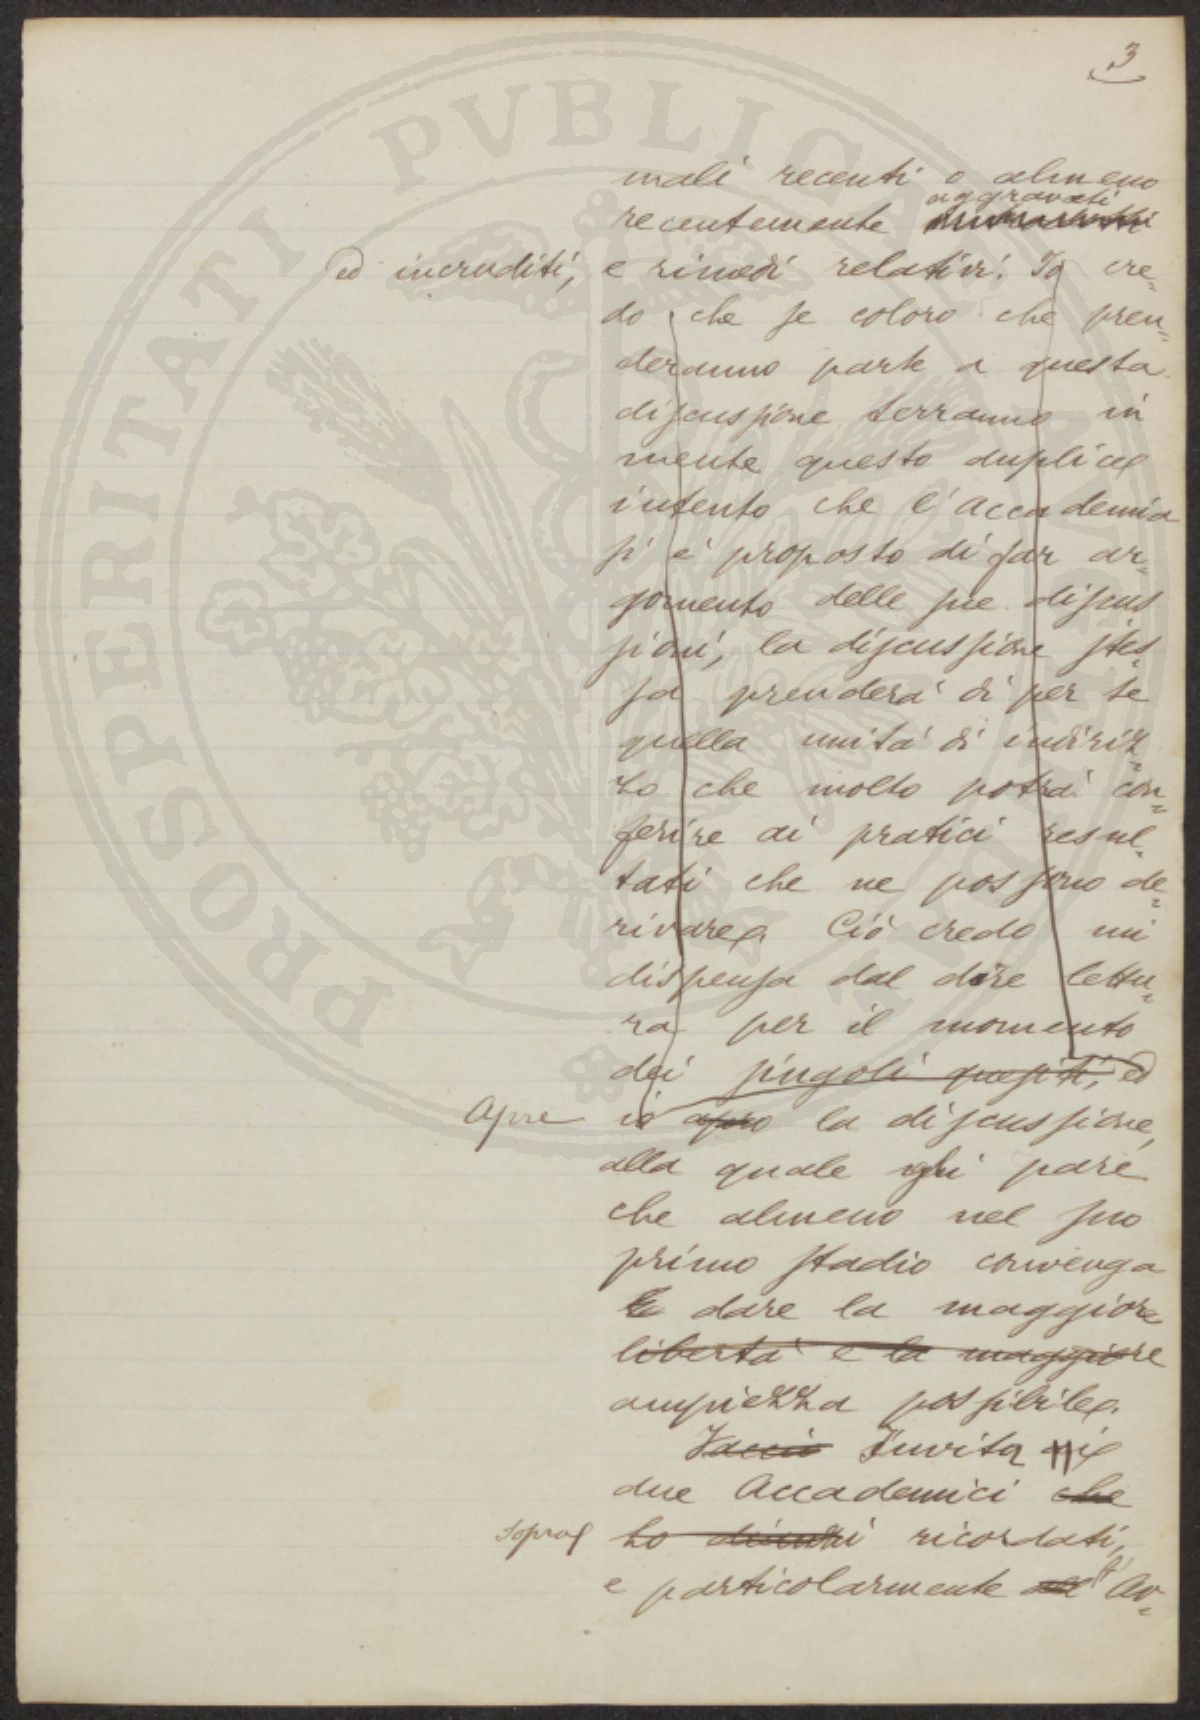 3
mali recenti o almeno
aggravati
recentemente
ed incruditi, e rimedi relativi. Io cre=
do che se coloro che pren=
deranno parte a questa
discussione terranno in
mente questo duplice
intento che l'Accademia
si è proposto di far ar=
gomento delle sue discus
sioni, la discussione stes=
sa prenderà di per se
quella unità di indiriz=
zo che molto potrà con=
ferire ai pratici resul=
tati che ne possono de=
rivare. Ciò credo mi
dispensa dal dare lettu=
ra per il momento
dei singoli quesiti, ed
Apre io apro la discussione,
alla quale gli pare
che almeno nel suo
primo stadio convenga
dare la maggiore
libertà e la maggiore
ampiezza possibile.
Faccio Invita i
due Accademici che
sopra ho ricordati,
e particolarmente l'Av=
PROSPERITATI PVBLICAE AVGENDAE